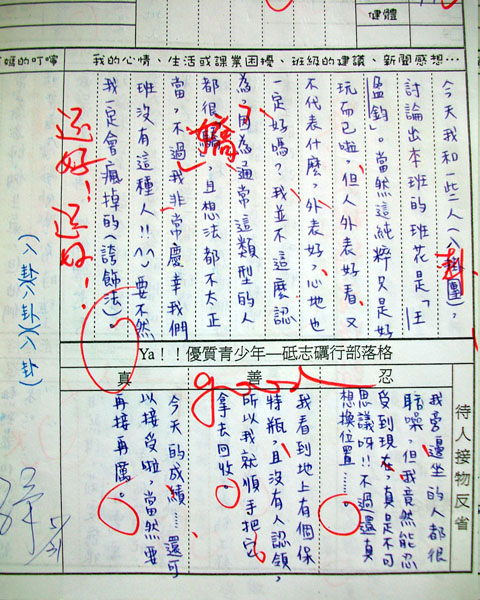 健體
媽的叮嚀
我的心情、生活或課業困擾、班級的建議、新聞感想…
今天我和一些人(八卦團)，
討論出本班的班花是「王
孟鈞」。當然這純粹只是好
玩而已啦，但人外表好看，又
不代表什麼，外表好，心地也
一定好嗎？我並不這麼認
為，因為通常這類型的人
都很驕，且想法都不太正
當，不過我非常慶幸我們
班沒有這種人!!^^(要不然
我一定會瘋掉的誇飾法)。
驕
卦
還好！還好！
(八卦)(八卦)(八卦)
Ya！！優質青少年—砥志礪行部落格
真
善
忍
待人接物反省
good
我旁邊坐的人都很
聒噪，但我竟然能忍
受到現在，真是不可
思議呀!!不過還真
想換位置……。
我看到地上有個保
特瓶，且沒有人認領，
所以我就順手把它
拿去回收。
今天的成績……還可
以接受啦，當然要
再接再厲。
5/21